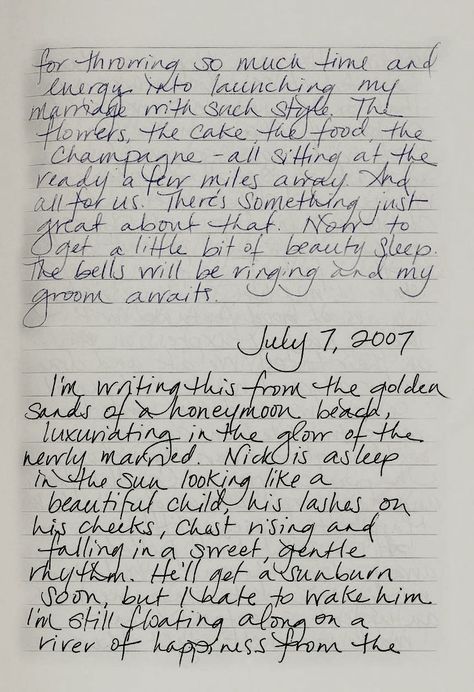 for throwing so much time and
energy into launching my
marriage with such style. The
flowers, the cake the food, the
Champagne - all sitting at the
ready a few miles away. And
all for us. There's something just
great about that. Now to
get a little bit of beauty sleep.
The bells will be ringing and my
groom awaits.
July 7, 2007
I'm writing this from the golden
sands of a honeymoon beach,
luxuriating in the glow of the
newly married. Nick is asleep
in the sun looking like a
beautiful child, his lashes on
his cheeks, chest rising and
falling in a sweet, gentle
rhythm. He'll get a sunburn
soon, but I hate to wake him
I'm still floating along on a
river of happiness from the